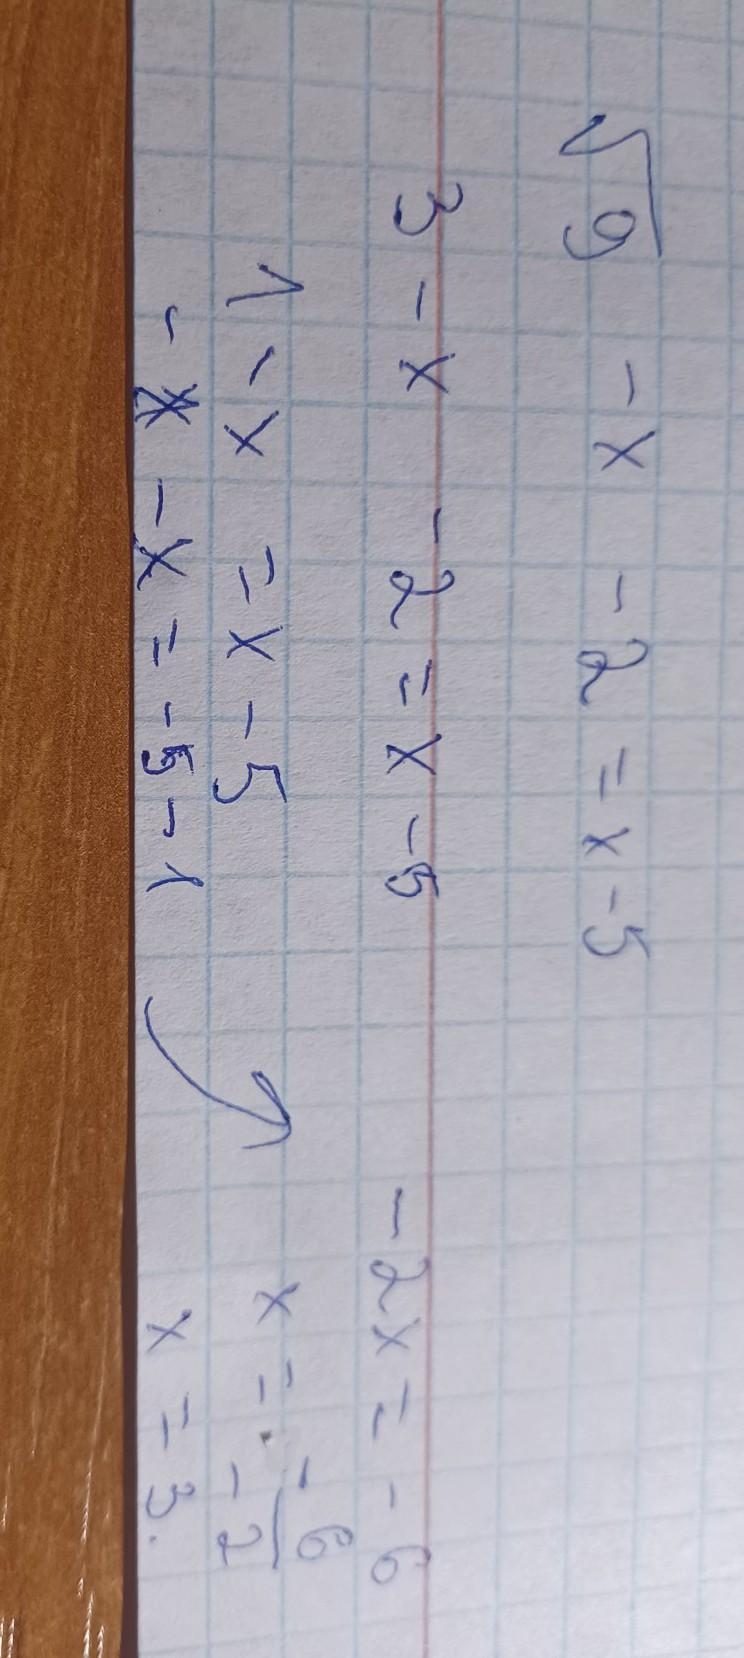 √9 - x - 2 = x - 5
3 - x - 2 = x - 5
1 - x = x - 5
- x - x = -5 - 1
-2x = -6
x = -6/-2
x = 3.